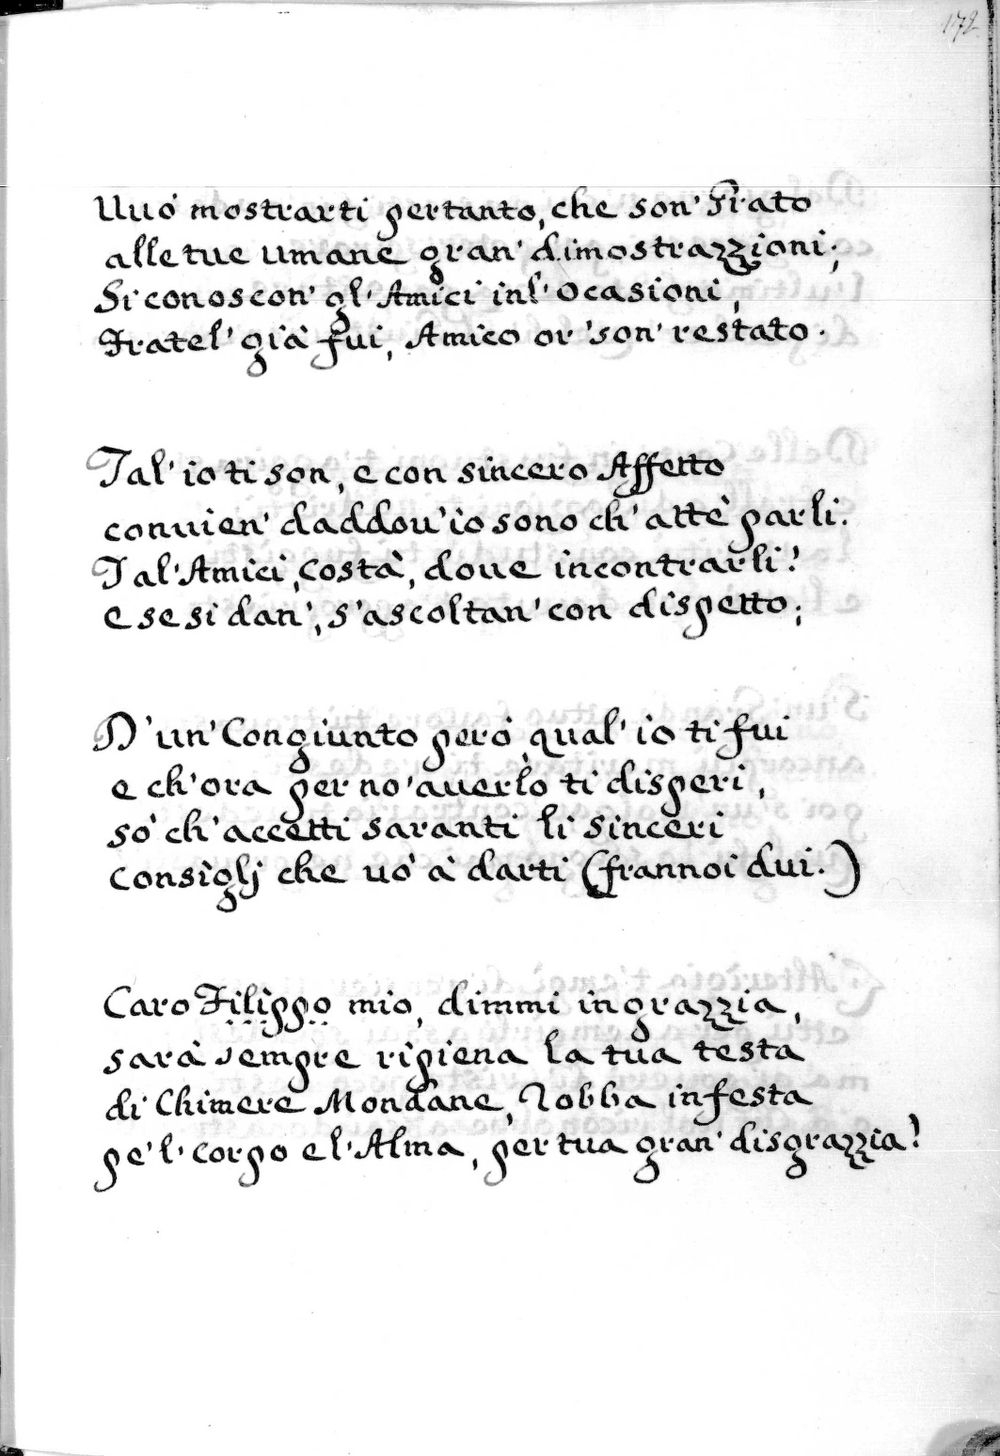 172
Uuó mostrarti pertanto, che son' Grato
alle tue umane gran' dimostrazzioni;
Si conoscon' gl' Amici inl' ocasioni,
Fratel' già fui, Amico or' son' restato.
Tal' io ti son, e con sincero Affetto
conuien' daddou' io sono ch' attè parli.
Tal' Amici, costà, doue incontrarli?
e se si dan', s' ascoltan' con dispetto;
D' un' Congiunto però, qual' io ti fui
e ch' ora per no' auerlo ti disperi,
sò ch' accetti saranti li sinceri
consiglj che uò à darti (frannoi dui.)
Caro Filippo mio, dimmi in grazzia,
sarà sempre ripiena la tua testa
di Chimere Mondane, Robba infesta
pe'l' corpo e l' Alma, per tua gran' disgrazzia?